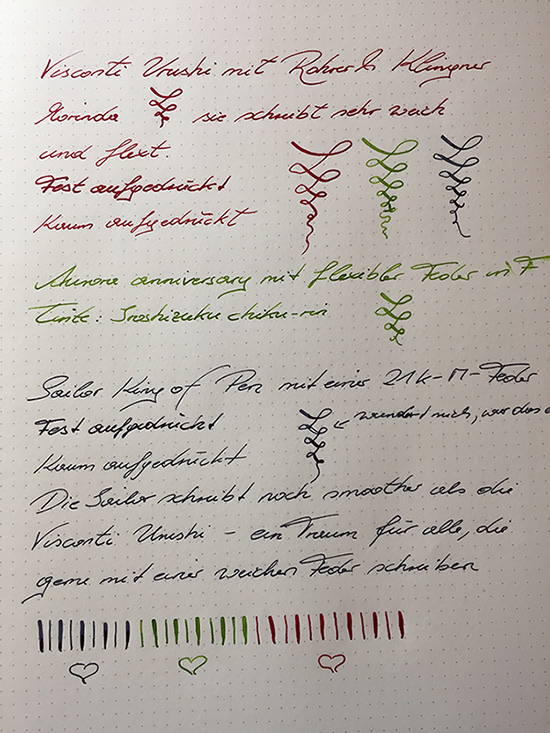 Visconti Urushi mit Rohrer & Klingner
Morinda sie schreibt sehr weich
und flext.
Fest aufgedrückt
Kaum aufgedrückt
Aurora anniversary mit flexibler Feder in F
Tinte: Iroshizuku chiku-rin
Sailor King of Pen mit einer 21k-M-Feder
Fest aufgedrückt
← wundert mich, war das
Kaum aufgedrückt
Die Sailor schreibt noch smoother als die
Visconti Urushi – ein Traum für alle, die
gerne mit einer weichen Feder schreiben